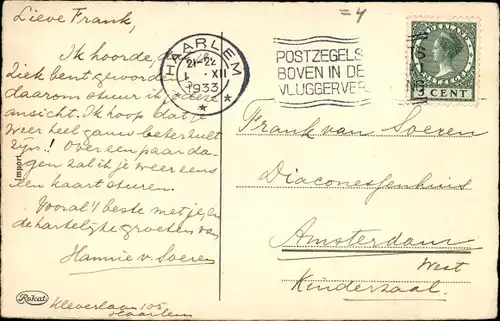 = 4
Lieve Frank,
Ik hoorde, dat je
ziek bent geworden
daarom stuur ik je deze
ansicht. Ik hoop dat je
weer heel gauw beker bult
zijn!! Over een paar da-
gen zal ik je weer eens
een kaart sturen.
Vooral 't beste met je, en
de hartelijke groeten van
Hannie v. Soeren
Kleverlaan 105
Haarlem
HAARLEM
21-22
1 · XII
1933
POSTZEGELS
BOVEN IN DE
VLUGGERVER
3 CENT
Frank van Soeren
Diaconessenhuis
Amsterdam
West
Kinderzaal.
Import
Rokat